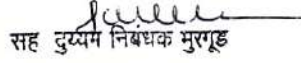 सह दुय्यम निबंधक मुरगूड